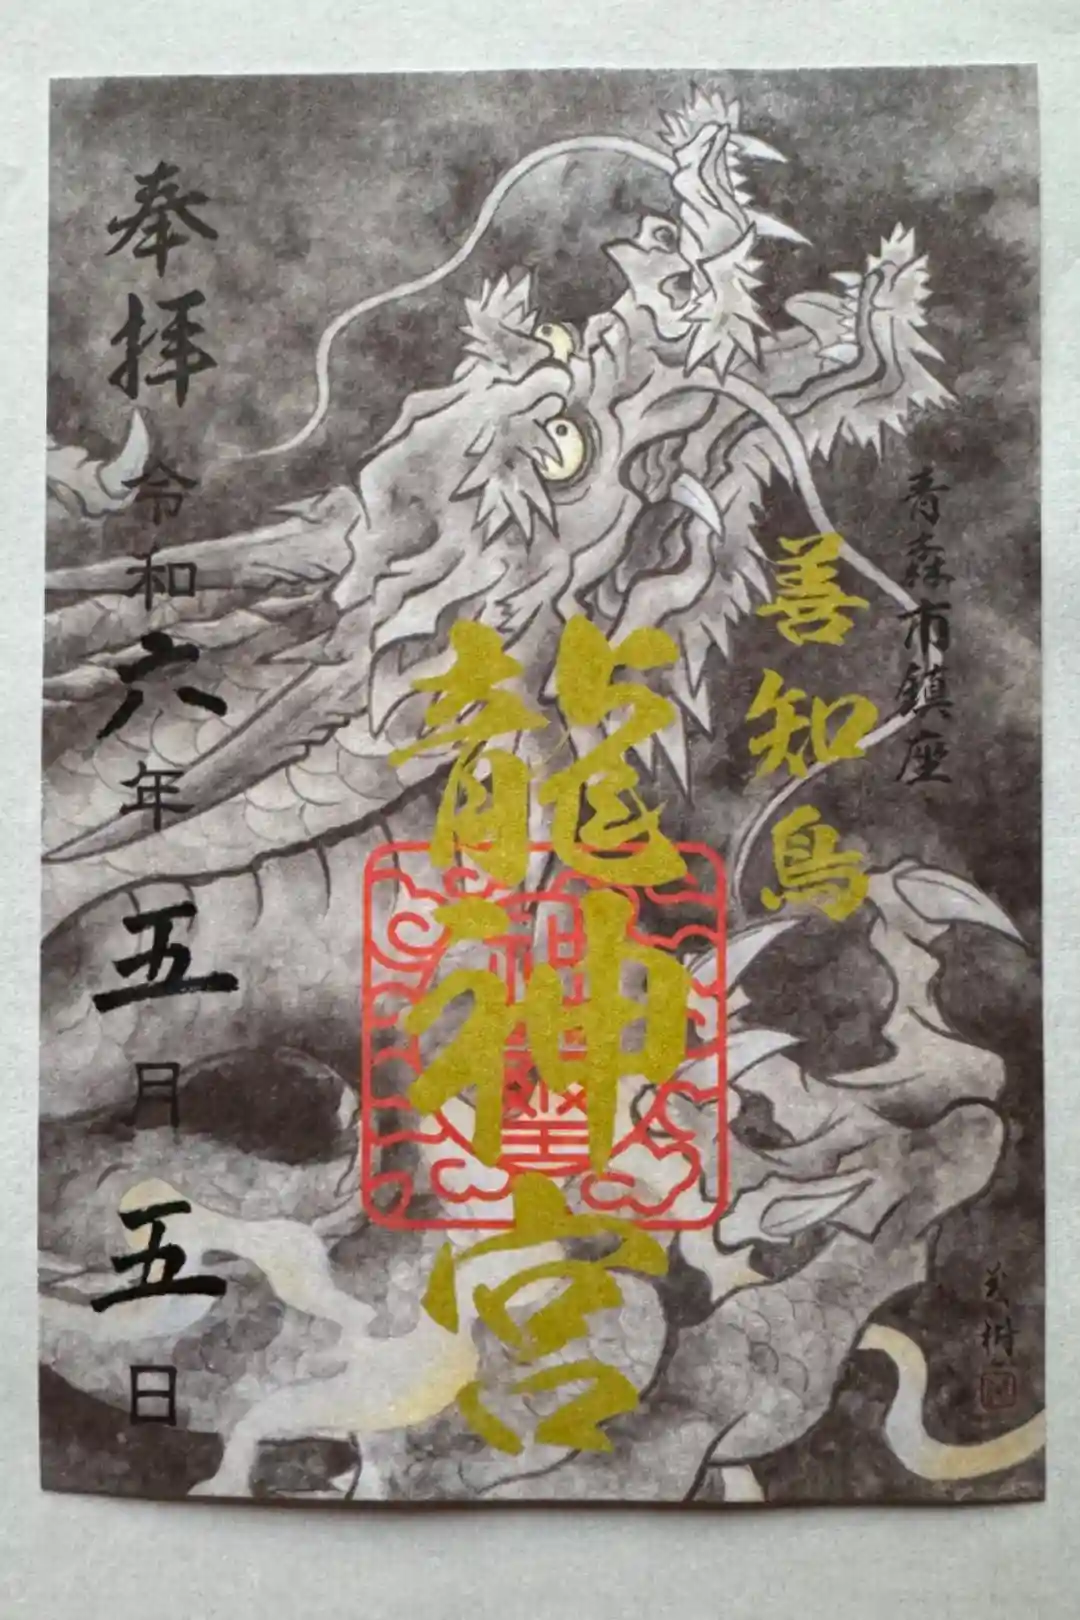 青森市鎮座
善知鳥
龍神宮
奉拝
令和六年五月五日